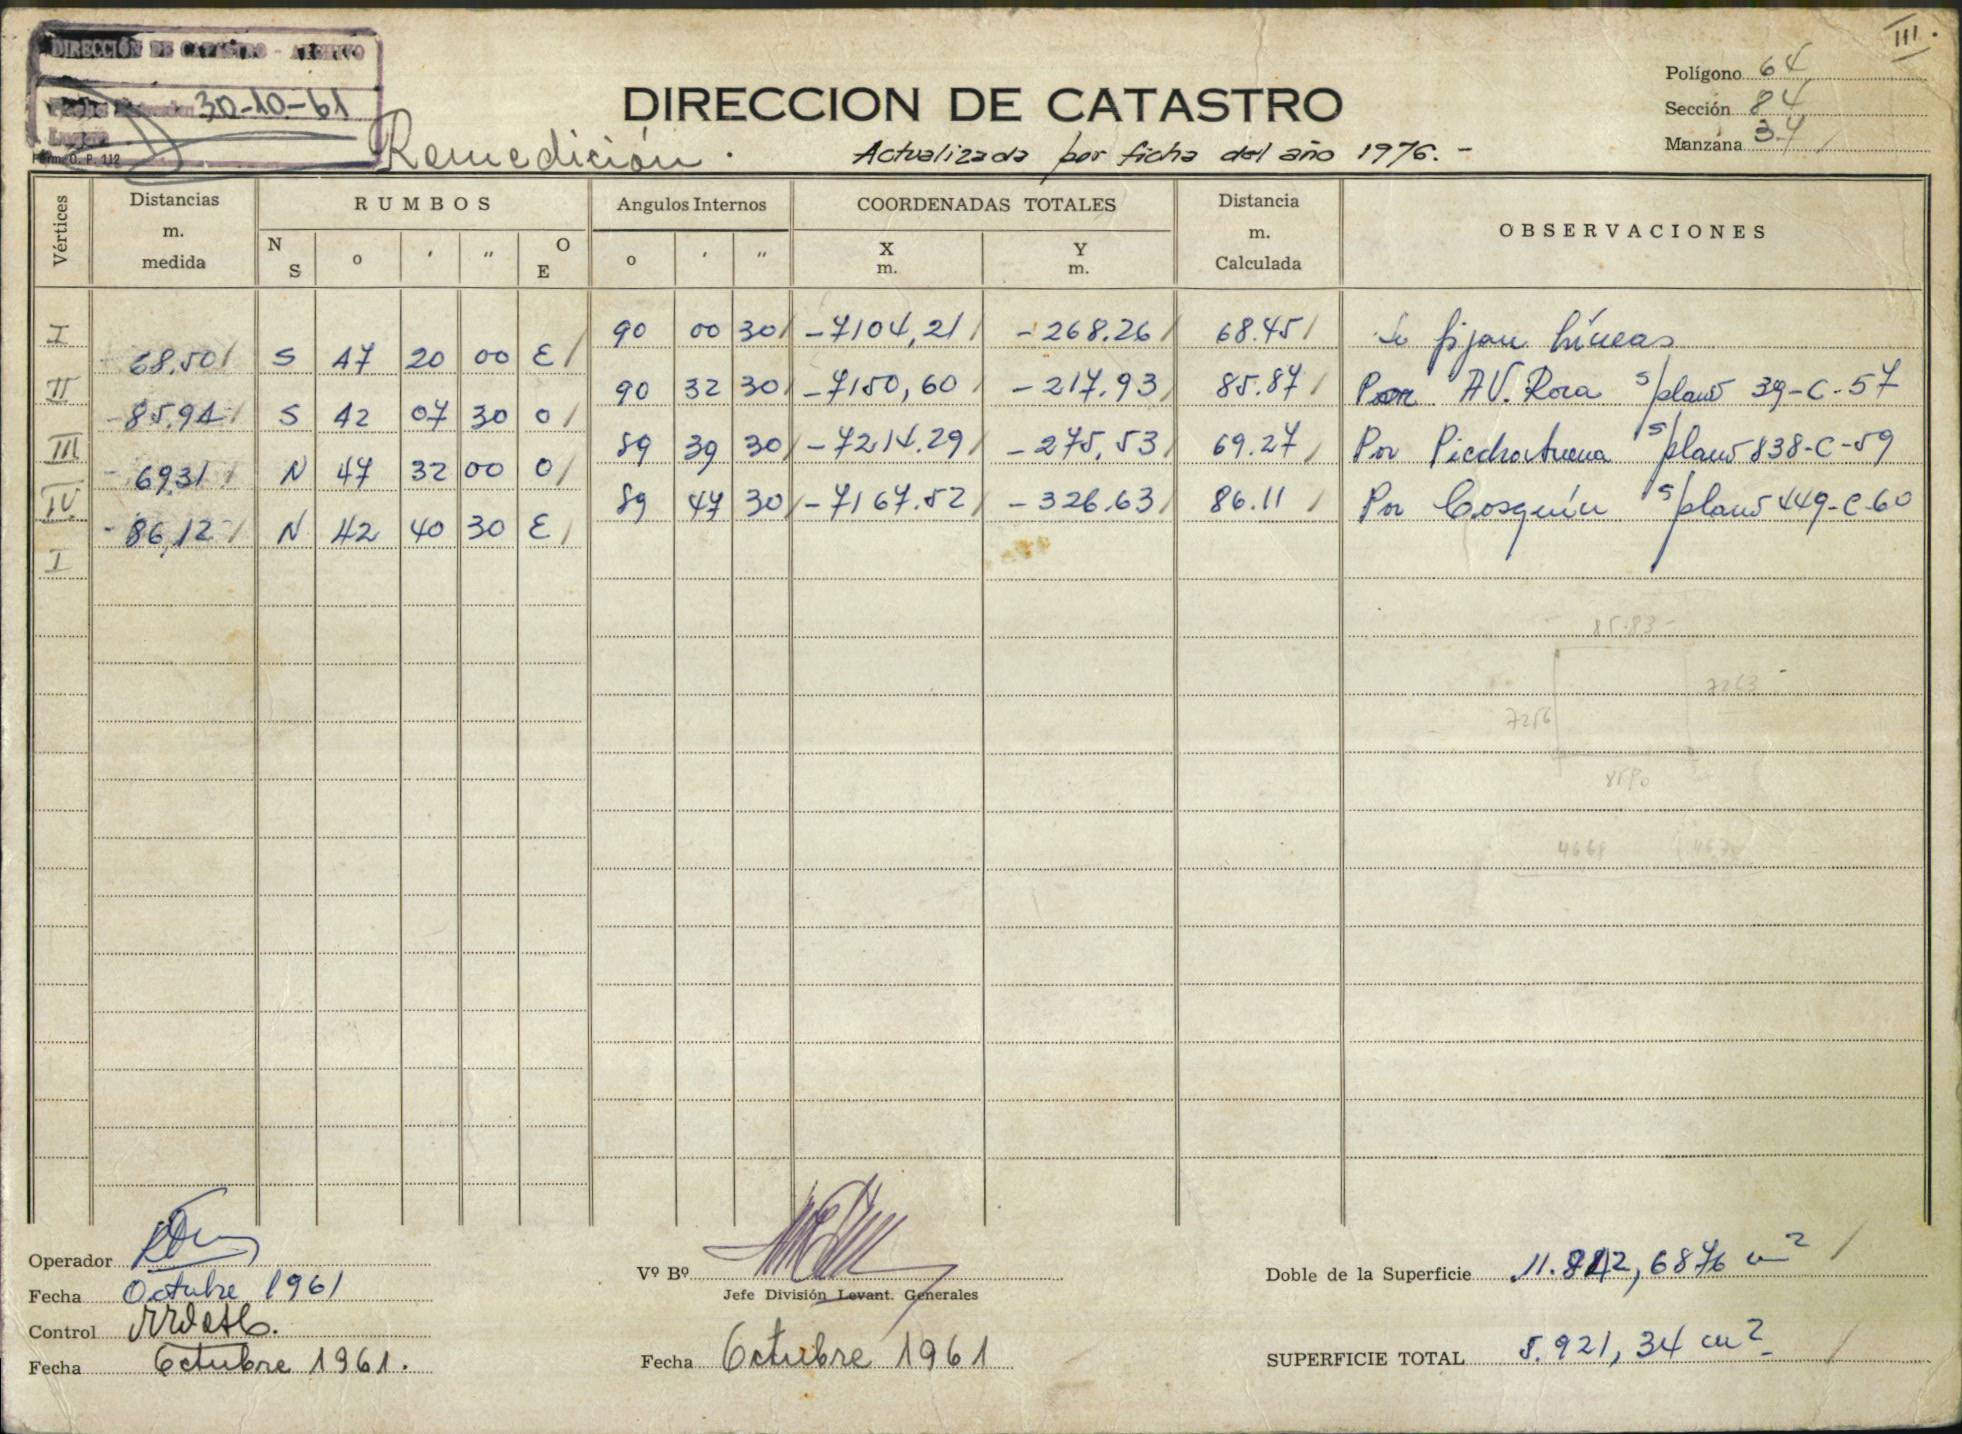 III.
DIRECCIÓN DE CATASTRO - ARCHIVO
30-10-61
Form. D. P. 112
Remedición.
DIRECCION DE CATASTRO
Actualizada por ficha del año 1976.-
Polígono 64
Sección 84
Manzana 34
Vértices Distancias m. medida RUMBOS Angulos Internos COORDENADAS TOTALES Distancia m. Calculada OBSERVACIONES
N S o ' " O E o ' " X m. Y m.
I 90 00 30 -7104,21 -268.26 68.45 Se fijan Líneas
68.50 S 47 20 00 E
II 90 32 30 -7150,60 -217.93 85.87 Por AV. Roca s/plano 39-C-57
85.94 S 42 07 30 O
III 89 39 30 -7214.29 -275,53 69.27 Por Piedrabuena s/plano 838-C-59
69.31 N 47 32 00 O
IV 89 47 30 -7167.52 -326.63 86.11 Por Cosquín s/plano 449-C-60
86,12 N 42 40 30 E
I
85.83
Operador
Fecha Octubre 1961
Control
Fecha Octubre 1961.
Vº Bº
Jefe División Levant. Generales
Fecha Octubre 1961
Doble de la Superficie 11.842,6876 m2
SUPERFICIE TOTAL 5.921,34 m2.